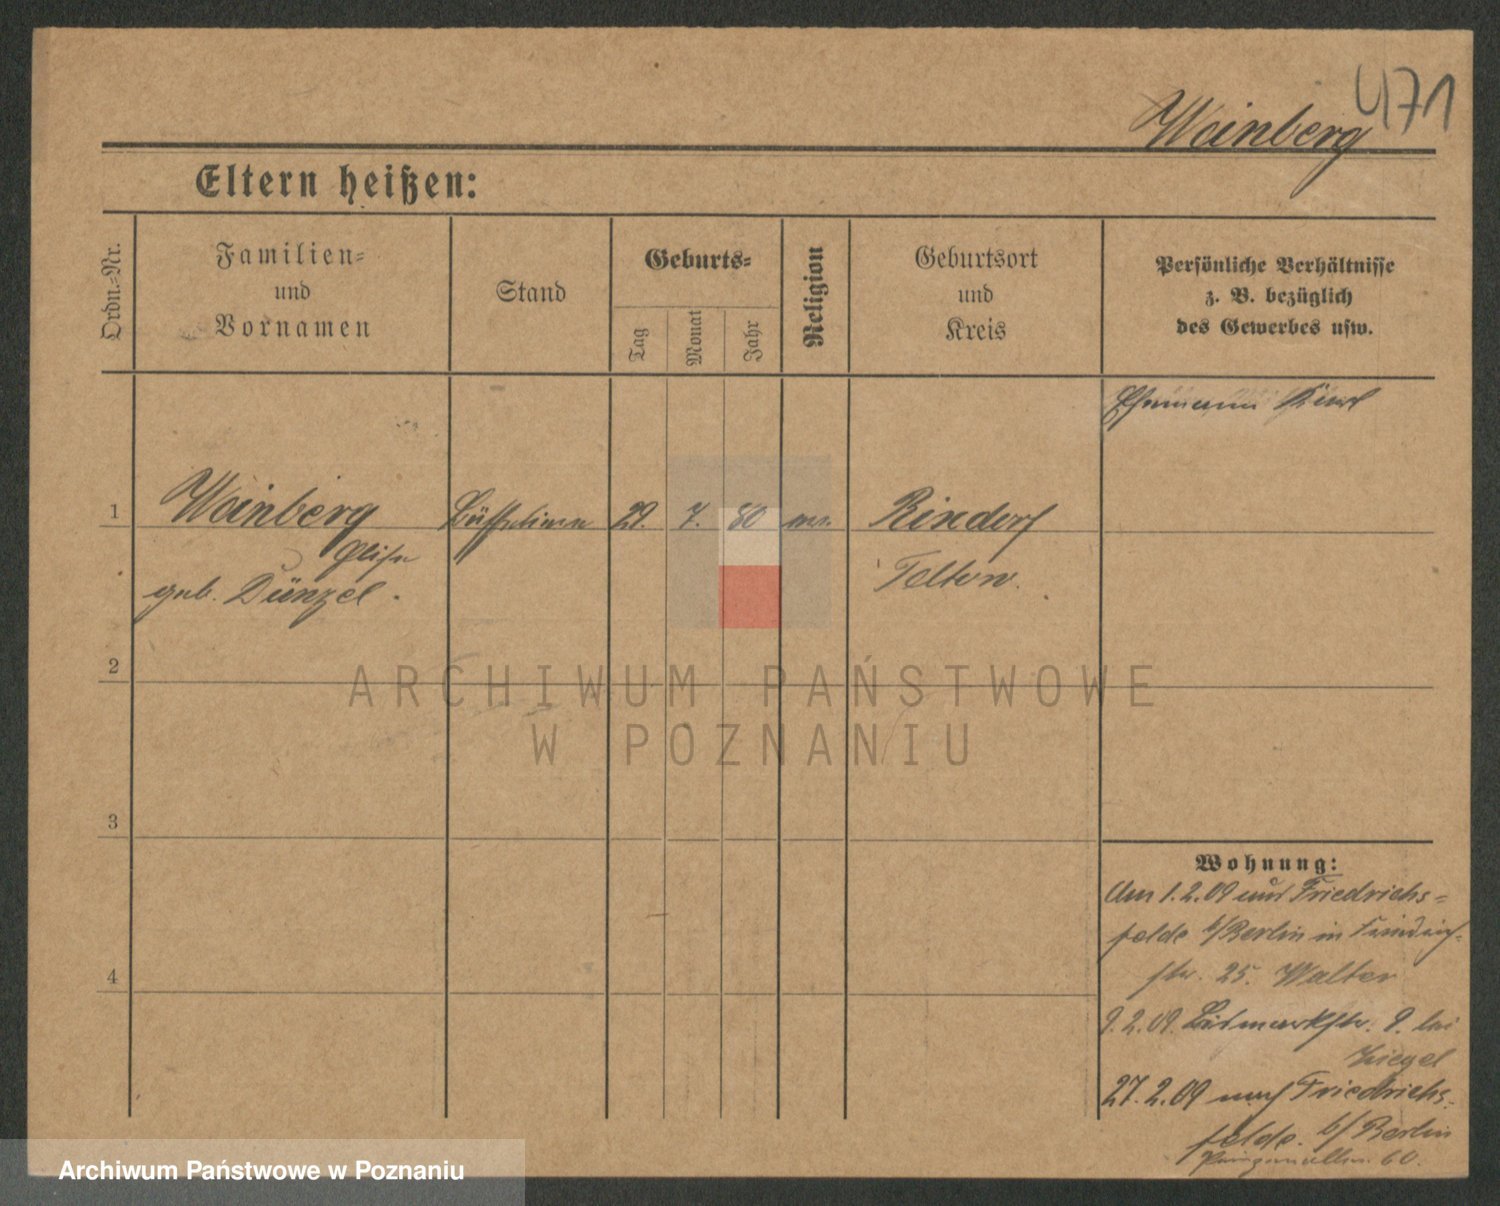 471
Wainberg
Eltern heißen:
Ordn.-Nr.
Familien-
und
Vornamen
Stand
Geburts-
Tag
Monat
Jahr
Religion
Geburtsort
und
Kreis
Persönliche Verhältnisse
z. B. bezüglich
des Gewerbes usw.
1
Wainberg
Elise
geb. Dünzel.
29. 7. 80
Rixdorf
Teltow.
2
3
4
Wohnung:
Am 1.2.09 nach Friedrichs-
felde b/Berlin in
str. 25. Walter
9.2.09. Bismarkstr. 9. bei
27.2.09 nach Friedrichs-
felde. b/Berlin
60.
ARCHIWUM PAŃSTWOWE
W POZNANIU
Archiwum Państwowe w Poznaniu